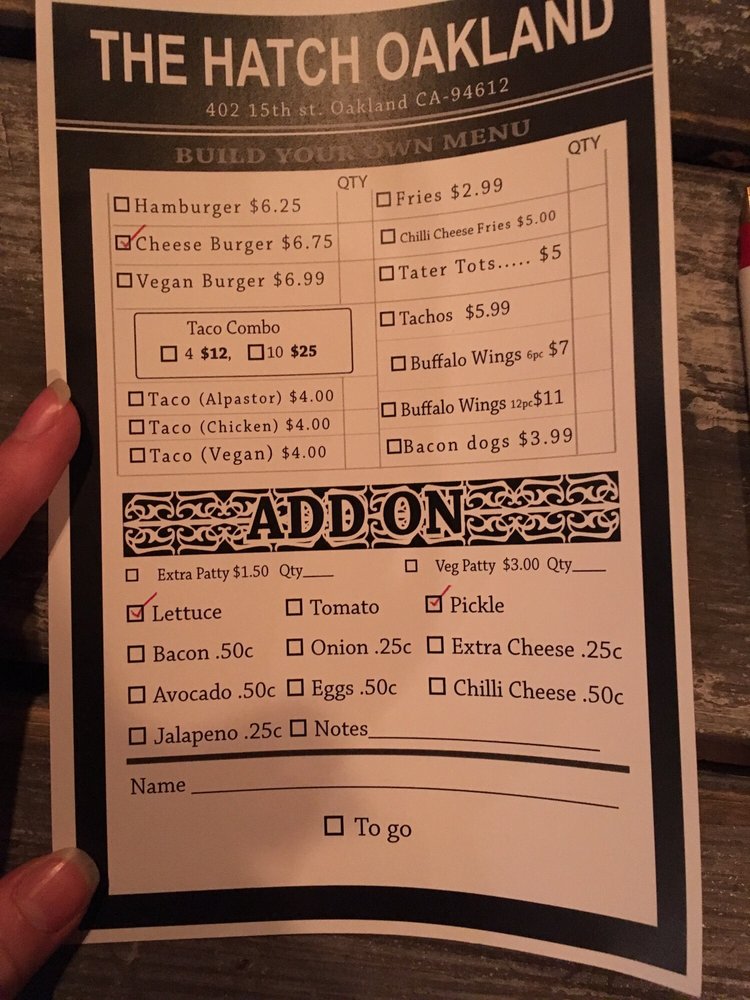 THE HATCH OAKLAND
402 15th st. Oakland CA-94612
BUILD YOUR OWN MENU
QTY
Hamburger $6.25
Cheese Burger $6.75
Vegan Burger $6.99
Taco Combo
4 $12, 10 $25
Taco (Alpastor) $4.00
Taco (Chicken) $4.00
Taco (Vegan) $4.00
QTY
Fries $2.99
Chilli Cheese Fries $5.00
Tater Tots..... $5
Tachos $5.99
Buffalo Wings 6pc $7
Buffalo Wings 12pc $11
Bacon dogs $3.99
ADD ON
Extra Patty $1.50 Qty___ Veg Patty $3.00 Qty___
Lettuce Tomato Pickle
Bacon .50c Onion .25c Extra Cheese .25c
Avocado .50c Eggs .50c Chilli Cheese .50c
Jalapeno .25c Notes___
Name___
To go